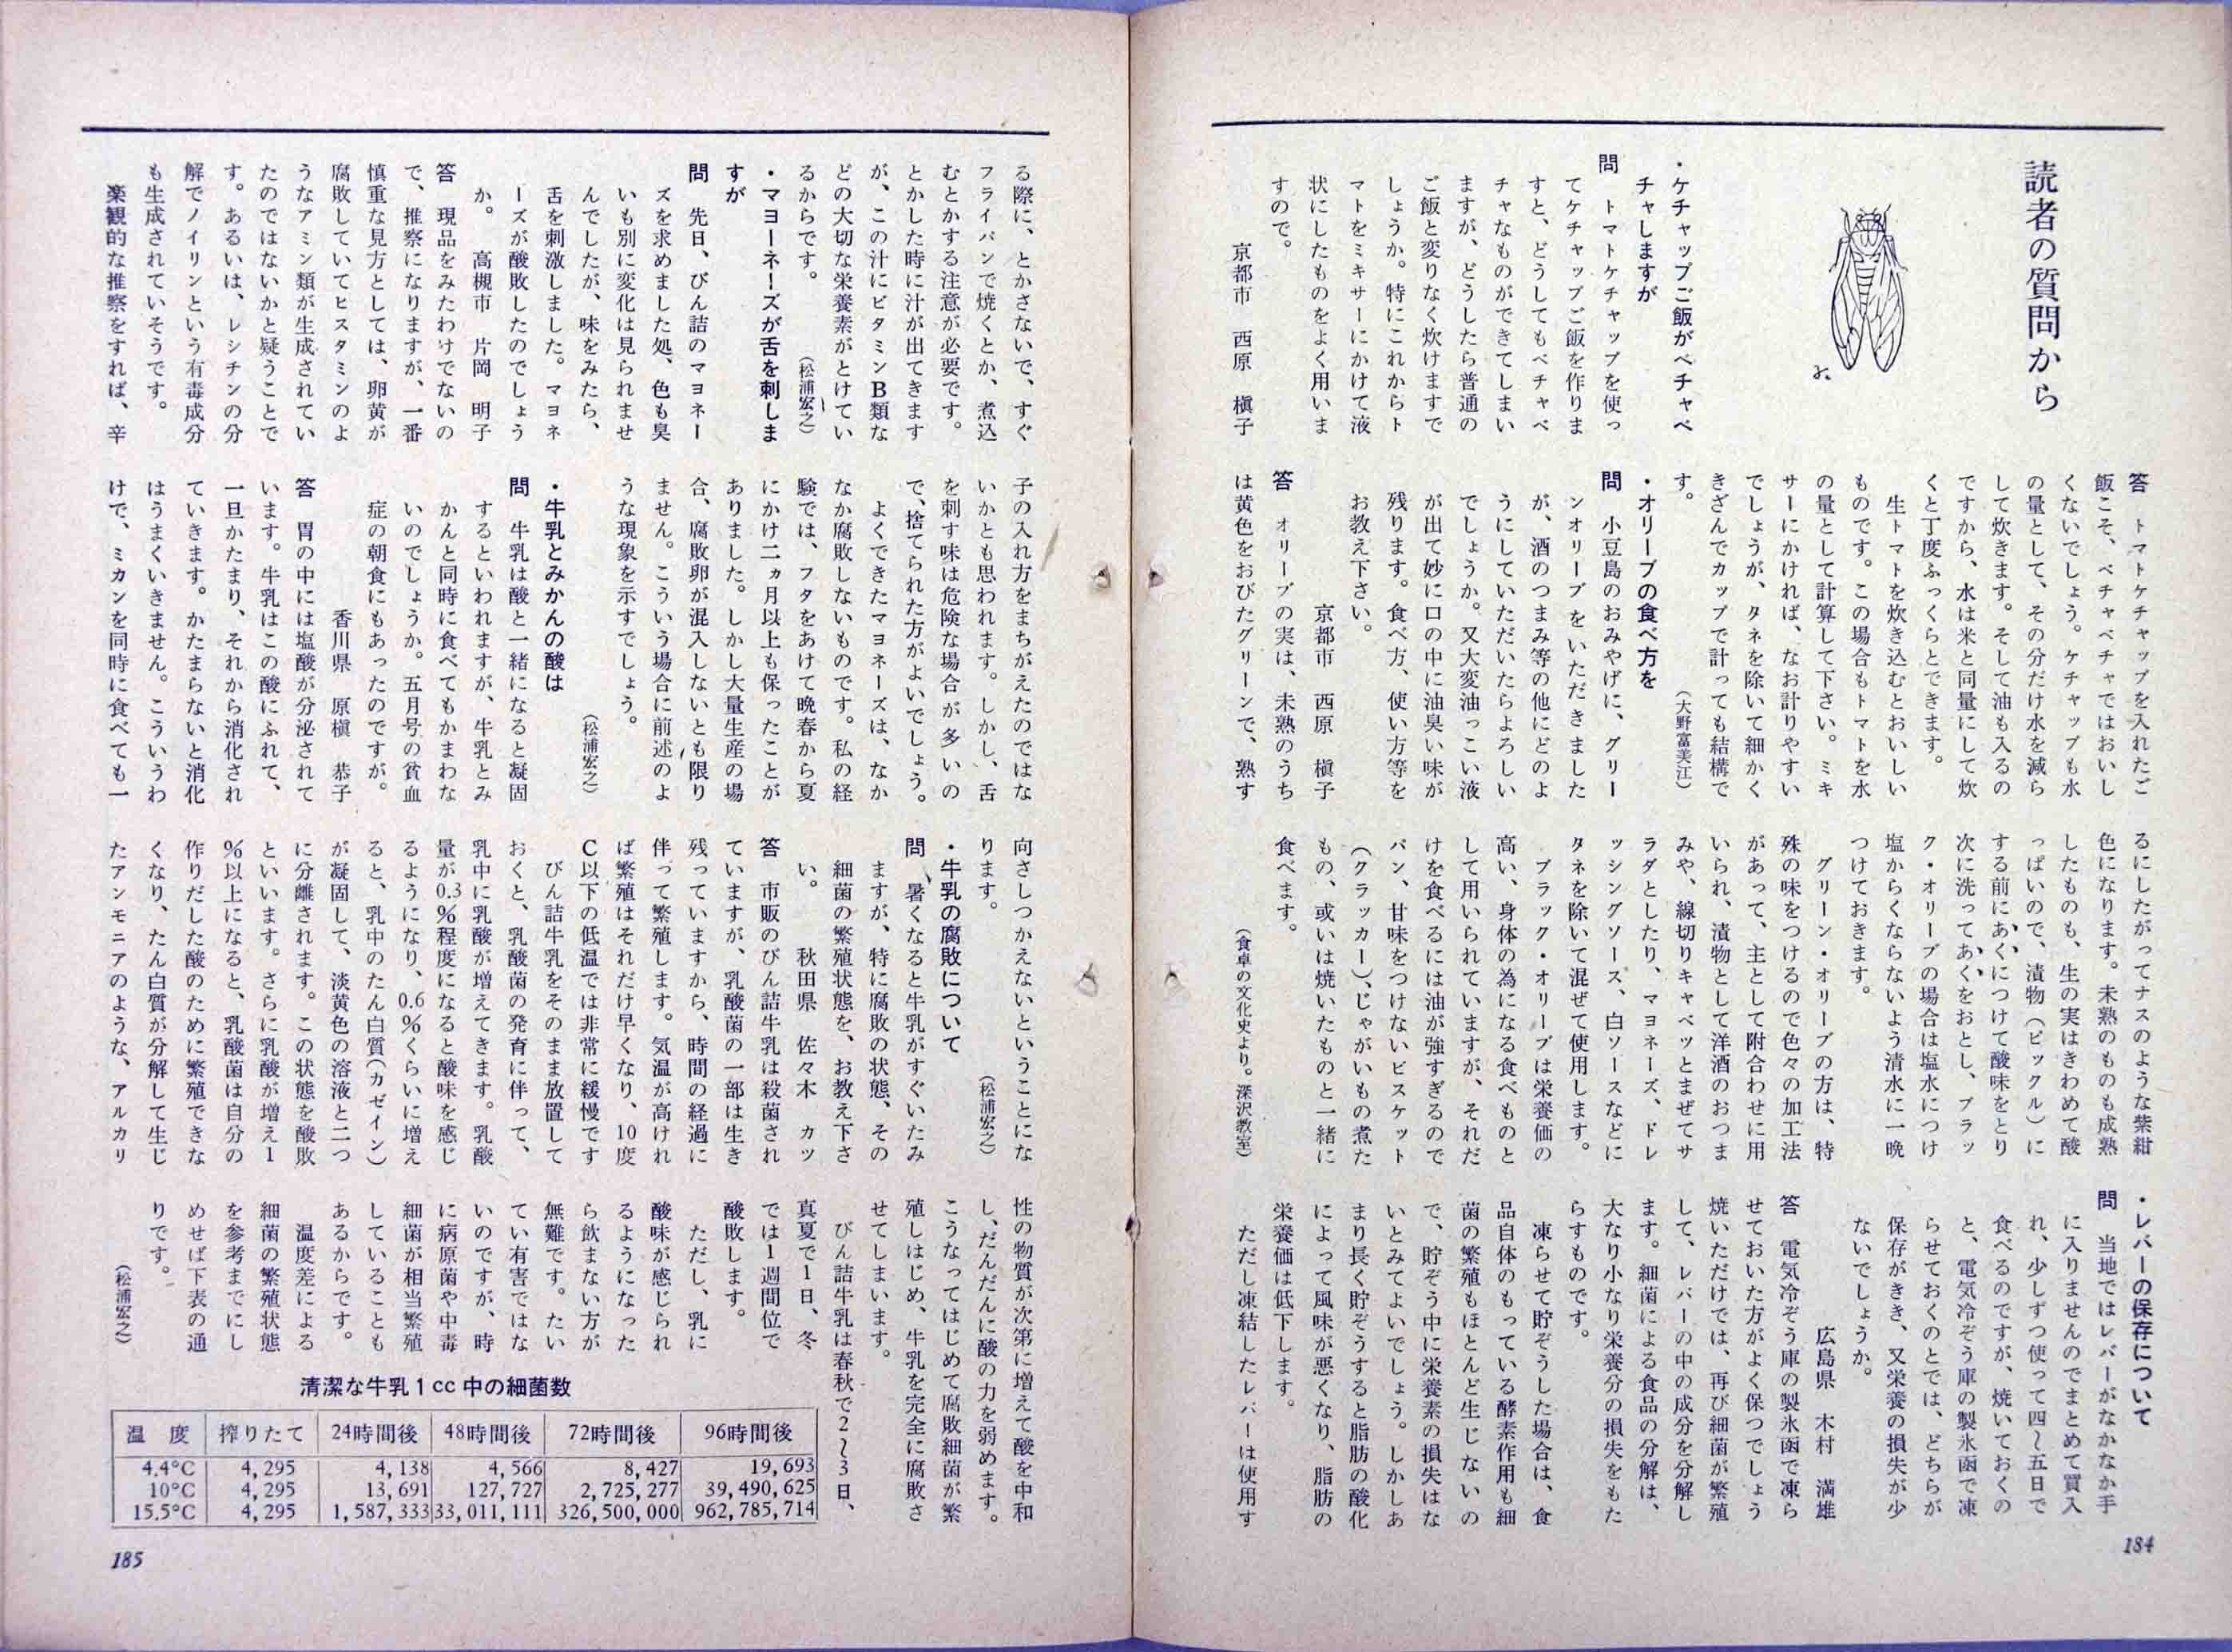 読者の質問から
・ケチャップご飯がベチャベ
チャしますが
問　トマトケチャップを使っ
てケチャップご飯を作りま
すと、どうしてもベチャベ
チャなものができてしまい
ますが、どうしたら普通の
ご飯と変りなく炊けますで
しょうか。特にこれからト
マトをミキサーにかけて液
状にしたものをよく用いま
すので。
京都市　西原　槇子
答　トマトケチャップを入れたご
飯こそ、ベチャベチャではおいし
くないでしょう。ケチャップも水
の量として、その分だけ水を減ら
して炊きます。そして油も入るの
ですから、水は米と同量にして炊
くと丁度ふっくらとできます。
生トマトを炊き込むとおいしい
ものです。この場合もトマトを水
の量として計算して下さい。ミキ
サーにかければ、なお計りやすい
でしょうが、タネを除いて細かく
きざんでカップで計っても結構で
す。
（大野富美江）
・オリーブの食べ方を
問　小豆島のおみやげに、グリー
ンオリーブをいただきました
が、酒のつまみ等の他にどのよ
うにしていただいたらよろしい
でしょうか。又大変油っこい液
が出て妙に口の中に油臭い味が
残ります。食べ方、使い方等を
お教え下さい。
京都市　西原　槇子
答　オリーブの実は、未熟のうち
は黄色をおびたグリーンで、熟す
るにしたがってナスのような紫紺
色になります。未熟のものも成熟
したものも、生の実はきわめて酸
っぱいので、漬物（ピックル）に
する前にあくにつけて酸味をとり
次に洗ってあくをおとし、ブラッ
ク・オリーブの場合は塩水につけ
塩からくならないよう清水に一晩
つけておきます。
グリーン・オリーブの方は、特
殊の味をつけるので色々の加工法
があって、主として附合わせに用
いられ、漬物として洋酒のおつま
みや、線切りキャベツとまぜてサ
ラダとしたり、マヨネーズ、ドレ
ッシングソース、白ソースなどに
タネを除いて混ぜて使用します。
ブラック・オリーブは栄養価の
高い、身体の為になる食べものと
して用いられていますが、それだ
けを食べるには油が強すぎるので
パン、甘味をつけないビスケット
（クラッカー）、じゃがいもの煮た
もの、或いは焼いたものと一緒に
食べます。
（食卓の文化史より。深沢教室）
・レバーの保存について
問　当地ではレバーがなかなか手
に入りませんのでまとめて買入
れ、少しずつ使って四〜五日で
食べるのですが、焼いておくの
と、電気冷ぞう庫の製氷函で凍
らせておくのとでは、どちらが
保存がきき、又栄養の損失が少
ないでしょうか。
広島県　木村　満雄
答　電気冷ぞう庫の製氷函で凍ら
せておいた方がよく保つでしょう
焼いただけでは、再び細菌が繁殖
して、レバーの中の成分を分解し
ます。細菌による食品の分解は、
大なり小なり栄養分の損失をもた
らすものです。
凍らせて貯ぞうした場合は、食
品自体のもっている酵素作用も細
菌の繁殖もほとんど生じないの
で、貯ぞう中に栄養素の損失はな
いとみてよいでしょう。しかしあ
まり長く貯ぞうすると脂肪の酸化
によって風味が悪くなり、脂肪の
栄養価は低下します。
ただし凍結したレバーは使用す
184
る際に、とかさないで、すぐ
フライパンで焼くとか、煮込
むとかする注意が必要です。
とかした時に汁が出てきます
が、この汁にビタミンB類な
どの大切な栄養素がとけてい
るからです。
（松浦宏之）
・マヨーネーズが舌を刺しま
すが
問　先日、びん詰のマヨネー
ズを求めました処、色も臭
いも別に変化は見られませ
んでしたが、味をみたら、
舌を刺激しました。マヨネ
ーズが酸敗したのでしょう
か。　高槻市　片岡　明子
答　現品をみたわけでないの
で、推察になりますが、一番
慎重な見方としては、卵黄が
腐敗していてヒスタミンのよ
うなアミン類が生成されてい
たのではないかと疑うことで
す。あるいは、レシチンの分
解でノイリンという有毒成分
も生成されていそうです。
楽観的な推察をすれば、辛
子の入れ方をまちがえたのではな
いかとも思われます。しかし、舌
を刺す味は危険な場合が多いの
で、捨てられた方がよいでしょう。
よくできたマヨネーズは、なか
なか腐敗しないものです。私の経
験では、フタをあけて晩春から夏
にかけ二ヵ月以上も保ったことが
ありました。しかし大量生産の場
合、腐敗卵が混入しないとも限り
ません。こういう場合に前述のよ
うな現象を示すでしょう。
（松浦宏之）
・牛乳とみかんの酸は
問　牛乳は酸と一緒になると凝固
するといわれますが、牛乳とみ
かんと同時に食べてもかまわな
いのでしょうか。五月号の貧血
症の朝食にもあったのですが。
香川県　原槇　恭子
答　胃の中には塩酸が分泌されて
います。牛乳はこの酸にふれて、
一旦かたまり、それから消化され
ていきます。かたまらないと消化
はうまくいきません。こういうわ
けで、ミカンを同時に食べても一
向さしつかえないということにな
ります。
（松浦宏之）
・牛乳の腐敗について
問　暑くなると牛乳がすぐいたみ
ますが、特に腐敗の状態、その
細菌の繁殖状態を、お教え下さ
い。　秋田県　佐々木　カツ
答　市販のびん詰牛乳は殺菌され
ていますが、乳酸菌の一部は生き
残っていますから、時間の経過に
伴って繁殖します。気温が高けれ
ば繁殖はそれだけ早くなり、10度
C以下の低温では非常に緩慢です
びん詰牛乳をそのまま放置して
おくと、乳酸菌の発育に伴って、
乳中に乳酸が増えてきます。乳酸
量が0.3％程度になると酸味を感じ
るようになり、0.6％くらいに増え
ると、乳中のたん白質（カゼイン）
が凝固して、淡黄色の溶液と二つ
に分離されます。この状態を酸敗
といいます。さらに乳酸が増え1
％以上になると、乳酸菌は自分の
作りだした酸のために繁殖できな
くなり、たん白質が分解して生じ
たアンモニアのような、アルカリ
性の物質が次第に増えて酸を中和
し、だんだんに酸の力を弱めます。
こうなってはじめて腐敗細菌が繁
殖しはじめ、牛乳を完全に腐敗さ
せてしまいます。
びん詰牛乳は春秋で2〜3日、
真夏で1日、冬
では1週間位で
酸敗します。
ただし、乳に
酸味が感じられ
るようになった
ら飲まない方が
無難です。たい
てい有害ではな
いのですが、時
に病原菌や中毒
細菌が相当繁殖
していることも
あるからです。
温度差による
細菌の繁殖状態
を参考までにし
めせば下表の通
りです。
（松浦宏之）
清潔な牛乳1cc中の細菌数
温　度　搾りたて　24時間後　48時間後　72時間後　96時間後
4.4°C　4,295　4,138　4,566　8,427　19,693
10°C　4,295　13,691　127,727　2,725,277　39,490,625
15.5°C　4,295　1,587,333　33,011,111　326,500,000　962,785,714
185